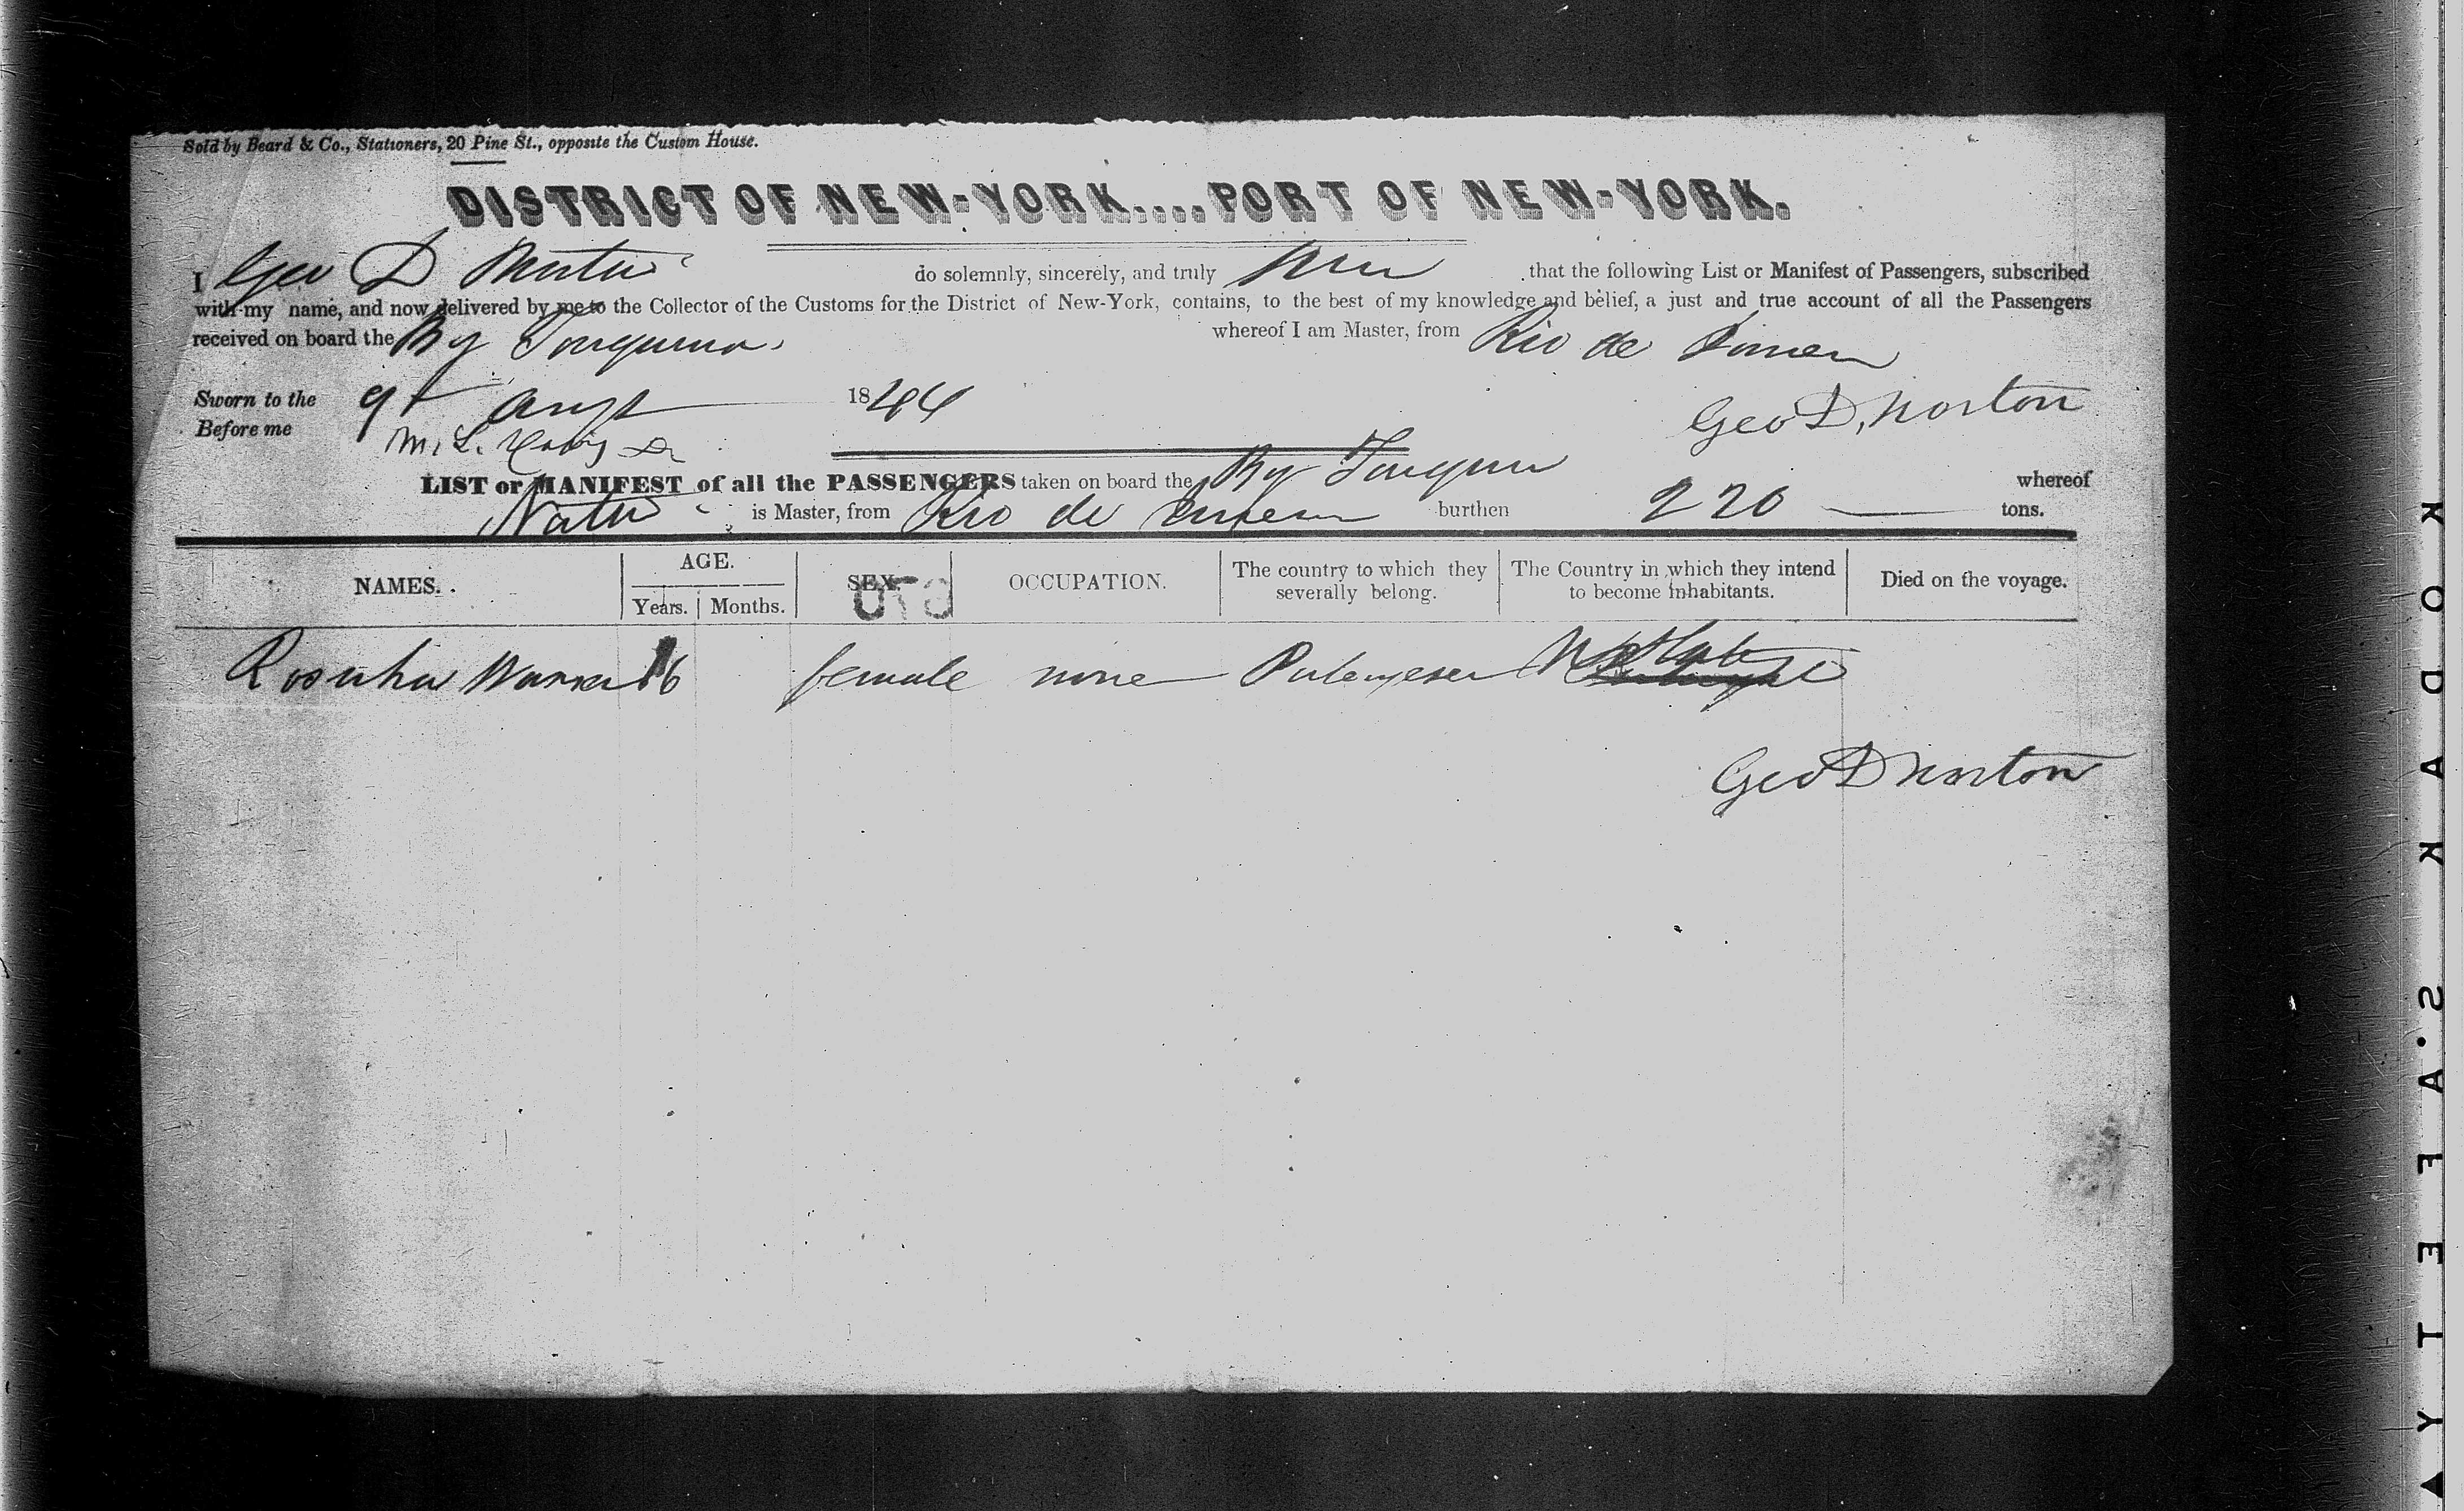 Sold by Beard & Co., Stationers, 20 Pine St., opposite the Custom House.
DISTRICT OF NEW-YORK....PORT OF NEW-YORK.
I Geo D do solemnly, sincerely, and truly that the following List or Manifest of Passengers, subscribed
with my name, and now delivered by me to the Collector of the Customs for the District of New-York, contains, to the best of my knowledge and belief, a just and true account of all the Passengers
received on board the whereof I am Master, from Rio de
Sworn to the 9t Augt 1844
Geo D, Norton
Before me M. L.
LIST or MANIFEST of all the PASSENGERS taken on board the whereof
is Master, from Rio de burthen 220 tons.
NAMES. AGE. Years. Months. SEX. OCCUPATION. The country to which they severally belong. The Country in which they intend to become inhabitants. Died on the voyage.
16 female none
Geo D Norton
KODAK SAFETY